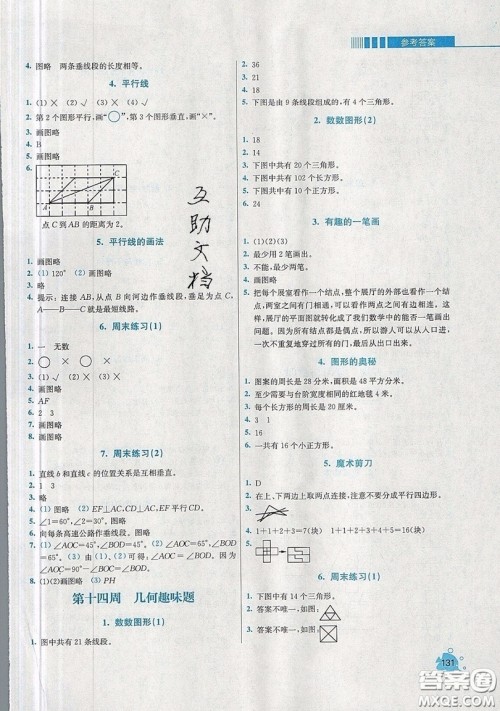 参考答案
4. 图略 两条垂线段的长度相等。
4. 平行线
1. (1)× (2)√ (3)√ (4)×
2. 第2个图形平行,画“○”,第3个图形垂直,画“×”。
3. 画图略
4. B
5. 画图略
6.
A B C
点C到AB的距离为2。
5. 平行线的画法
1. 画图略
2. (1)120° (2)画图略
3. 画图略
4. 提示:连接AB,从点B向河边作垂线段,垂足为点C,
A——B——C就是最短路线。
6. 周末练习(1)
1. 一 无数
2. ○ × ○ ×
3. (1)√ (2)× (3)×
4. 画图略
5. AF
6. 2 3
7. 画图略
8. 画图略
7. 周末练习(2)
1. 直线b和直线c的位置关系是互相垂直。
2. 1 3
3. 略
4. (1)图略 (2)EF⊥AC,CD⊥AC,EF平行CD。
5. ∠1=60°,∠2=30° 画图略
6. 向每条高速公路作垂线段,画图略。
7. (1)∠AOC=45°,∠BOD=45°。 (2)∠AOC=65°,∠BOD
=65°。 (3)由(1)、(2)可得:∠AOC=∠BOD。因为
∠AOC=90°-∠BOC,∠BOD=90°-∠BOC。
8. (1)(2)画图略 (3)PH
第十四周 几何趣味题
1. 数数图形(1)
1. 图中共有21条线段。
2. 36
3. 21
4. 18
5. 下图是由9条线段组成的,有4个三角形。
2. 数数图形(2)
1. 18
2. 14
3. 下图中共有20个三角形。
4. 下图中共有102个长方形。
5. 下图中共有10个正方形。
6. 24
3. 有趣的一笔画
1. (1)(2)(3)
2. 最少用2笔画出。
3. 不能,最少两笔。
4. 画图略
5. 把每个展室看作一个结点,整个展厅的外部也看作一个结
点,两室之间有门相通,可以看作两点之间有边相连。这
样,展厅的平面图就转化成了我们数学中的能否一笔画
出问题。因为切结点都是偶点。所以游人可以从入口进,
一次不重复地穿过所有门,从出口出来。
4. 图形的奥秘
1. 图案的周长是28分米,面积是48平方分米。
2. 至少需要与台阶宽度相同的红地毯4米。
3. 每个长方形的周长为20厘米。
4. 3 1
5. 16
6. 一共有16个小正方形。
5. 魔术剪刀
1. D
2. 在上、下两边上取两点连接,注意不要分成平行四边形。
3.
4. 1+1+2+3=7(块) 1+1+2+3+4+5=16(块)
5.
6. 周末练习(1)
1. 下图中有14个三角形。
2. 答案不唯一,如
3. 答案不唯一,如
互助文档
131
答案圈
MXQE.COM